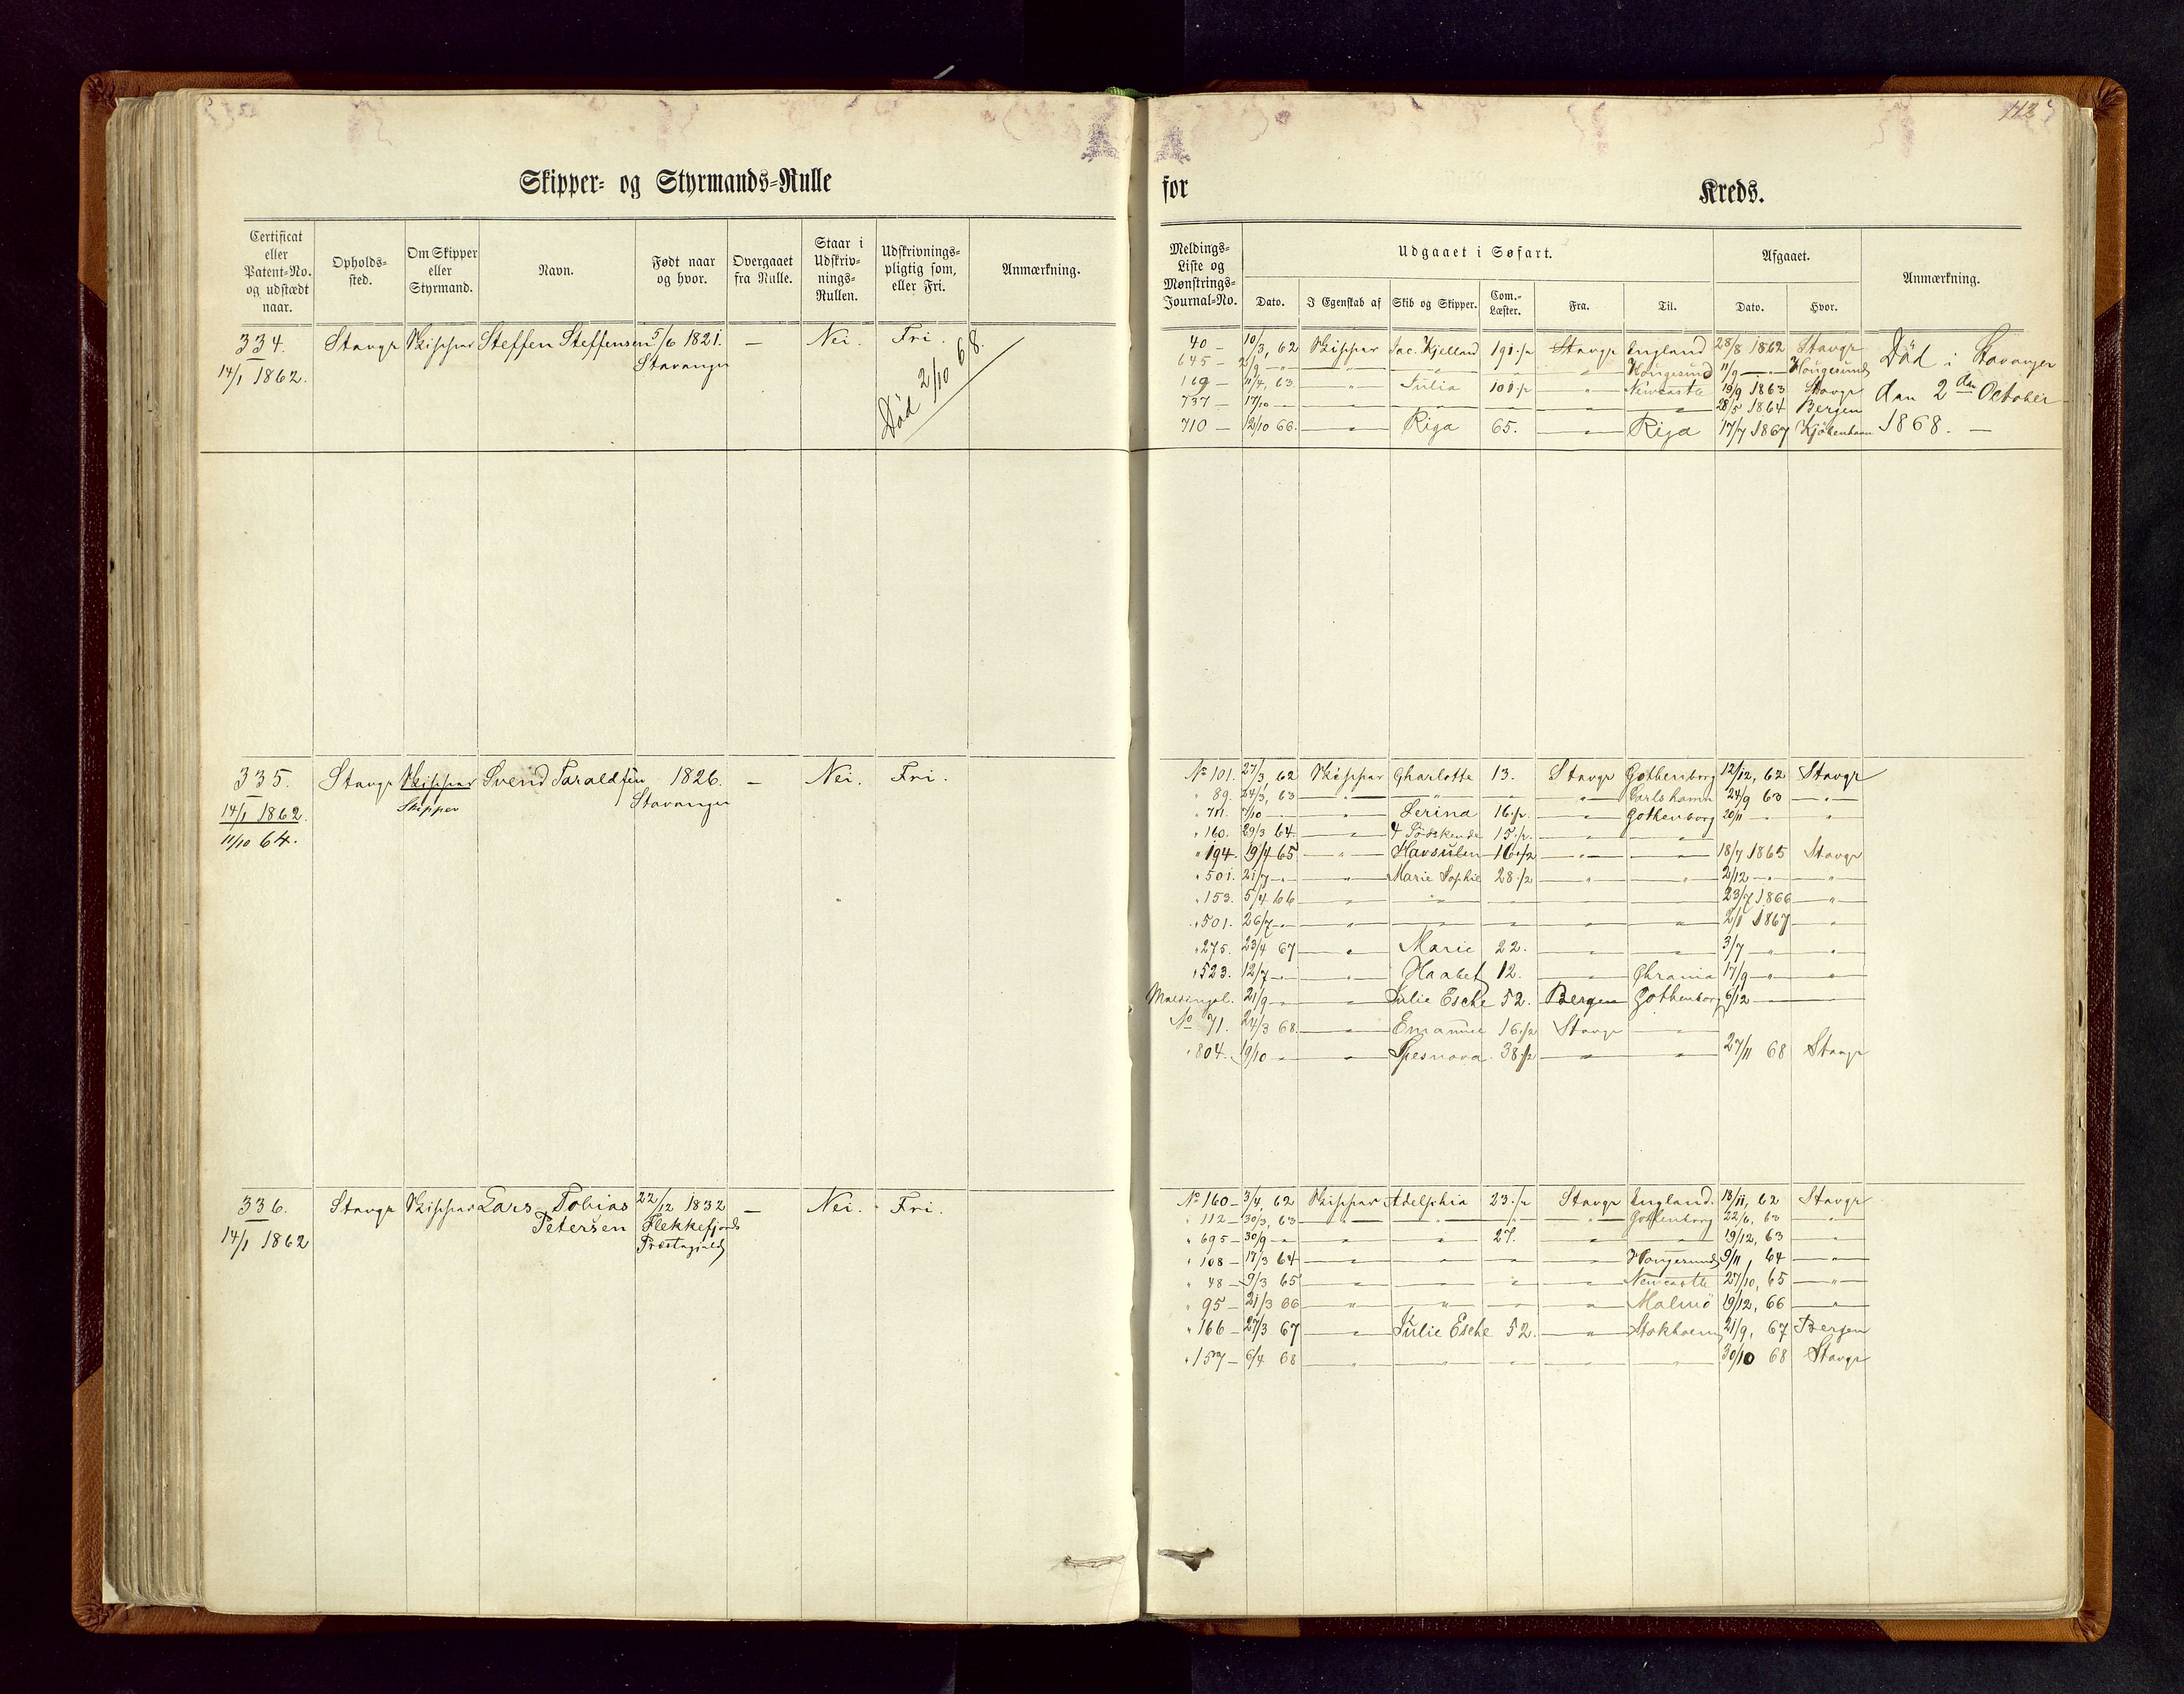 113
Skipper- og Styrmands-Rulle
for Kreds.
Certificat eller Patent-No. og udstædt naar.
Opholds-sted.
Om Skipper eller Styrmand.
Navn.
Født naar og hvor.
Overgaaet fra Rulle.
Staar i Udskriv-nings-Rullen.
Udskrivnings-pligtig som, eller Fri.
Anmærkning.
Meldings-Liste og Mønstrings-Journal-No.
Udgaaet i Søfart.
Dato.
I Egenskab af
Skib og Skipper.
Com.-Læster.
Fra.
Til.
Afgaaet.
Dato.
Hvor.
Anmærkning.
334. Stavgr Skipper Steffen Steffensen 5/6 1821. — Nei. Fri.
14/1 1862. Stavanger
Död 2/10 68.
40 — 10/3, 62 Skipper Jac. Kjelland 191 1/2 Stavgr England 28/8 1862 Stavgr
645 — 2/9 — " — — " — — " — " " Hougesund 11/9 — " — Hougesund
169 — 11/4, 63 — " — Julia 101 1/2 " Newcastle 19/9 1863 Stavgr
737 — 17/10 — — " — — " — — " — — " — — " — 28/5 1864 Bergen
710 — 12/10 66. — " — Riga 65. — " — Riga 17/7 1867 Kjöbenhavn
Död i Stavanger
den 2den October
1868. —
335. Stavgr Skipper Svend Taraldsen 1826. — Nei. Fri.
Skipper Stavanger
14/1 1862.
11/10 64.
No 101. 27/3 62 Skipper Charlotte 13. Stavgr Gothenborg 12/12, 62 Stavgr
" 89. 24/3, 63 — " — — " — — " — " Carlshamn 24/9 63 — " —
" 711. 7/10 — — " — Serina 16 1/2 — " — Gothenborg 20/11 — "
" 160. 29/3 64 — " — 4 Södskende 15 1/2 — " — "
" 194. 19/4 65 — " — Havsulen 16 1/2 — " — — " — 18/7 1865 Stavgr
" 501. 21/7 — — " — Marie Sophie 28 1/2 — " — " 2/12 — — " —
" 153. 5/4 66 — " — — " — — " — — " — — " — 23/7 1866 — " —
" 501. 26/7 — — " — — " — — " — — " — — " — 2/1 1867 — " —
" 275. 23/4 67 — " — Marie 22. — " — — " — 3/7 — " — "
" 523. 12/7 — — " — Haabet 12. — " — Chrania 17/9 — " — "
Meldingsl. 21/9 — — " — Julie Esche 52. Bergen Gothenborg 6/12 — —
No 71. 24/3 68 — " — Emanuel 16 1/2 Stavgr — " —
" 804. 9/10 — — " — Spesnova 38 1/2 — " — — " — 27/11 68 Stavgr
336. Stavgr Skipper Lars Tobias 22/12 1832 — Nei. Fri.
Petersen Flekkefjords
14/1 1862 Præstegjeld
No 160 — 3/4, 62 Skipper Adelphia 23 1/2 Stavgr England. 13/11, 62 Stavgr
" 112 — 30/3, 63 — " — — " — — " — — " — Gothenborg 22/6, 63 — " —
" 695 — 30/9 — — " — " 27. — " — — " — 19/12, 63 — " —
" 108 — 17/3 64 — " — — " — — " — — " — Hougesund 9/11, 64 — " —
" 48 — 9/3 65 — " — — " — — " — — " — Newcastle 27/10, 65 — " —
" 95 — 21/3 66 — " — — " — — " — — " — Malmö 19/12, 66 — " —
" 166 — 27/3 67 — " — Julie Esche 52. — " — Stokholm 21/9, 67 Bergen
" 157 — 6/4 68 — " — — " — — " — — " — — " — 30/10 68 Stavgr